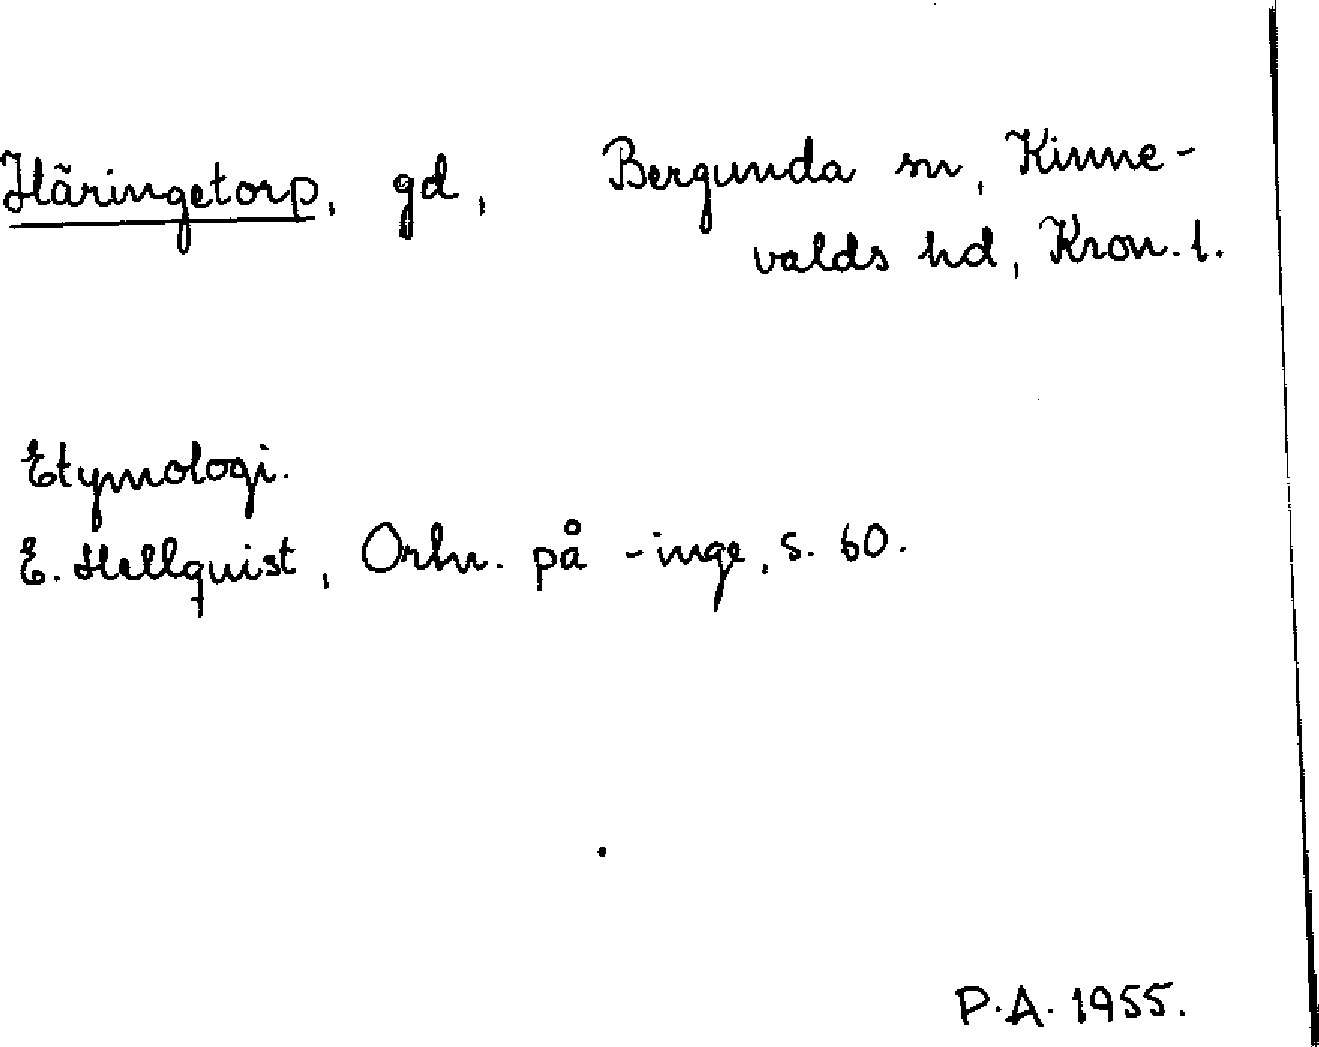 Häringetorp, gd, Bergunda sn, Kinne-
valds hd, Kron. l.
Etymologi.
E. Hellquist, Ortn. på -inge, s. 60.
P.A. 1955.